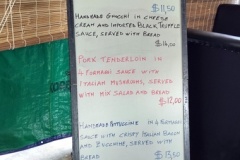 $11,50
HANDMADE GNOCCHI IN CHEESE
CREAM AND IMPORTED BLACK TRUFFLE
SAUCE, SERVED WITH BREAD
$14,00
PORK TENDERLOIN IN
4 FORMAGI SAUCE WITH
ITALIAN MUSHROOMS, SERVED
WITH MIX SALAD AND BREAD
$12,00
HANDMADE FETTUCCINE IN 4 FORMAGI
SAUCE WITH CRISPY ITALIAN BACON
AND ZUCCHINI, SERVED WITH
BREAD
$13,50